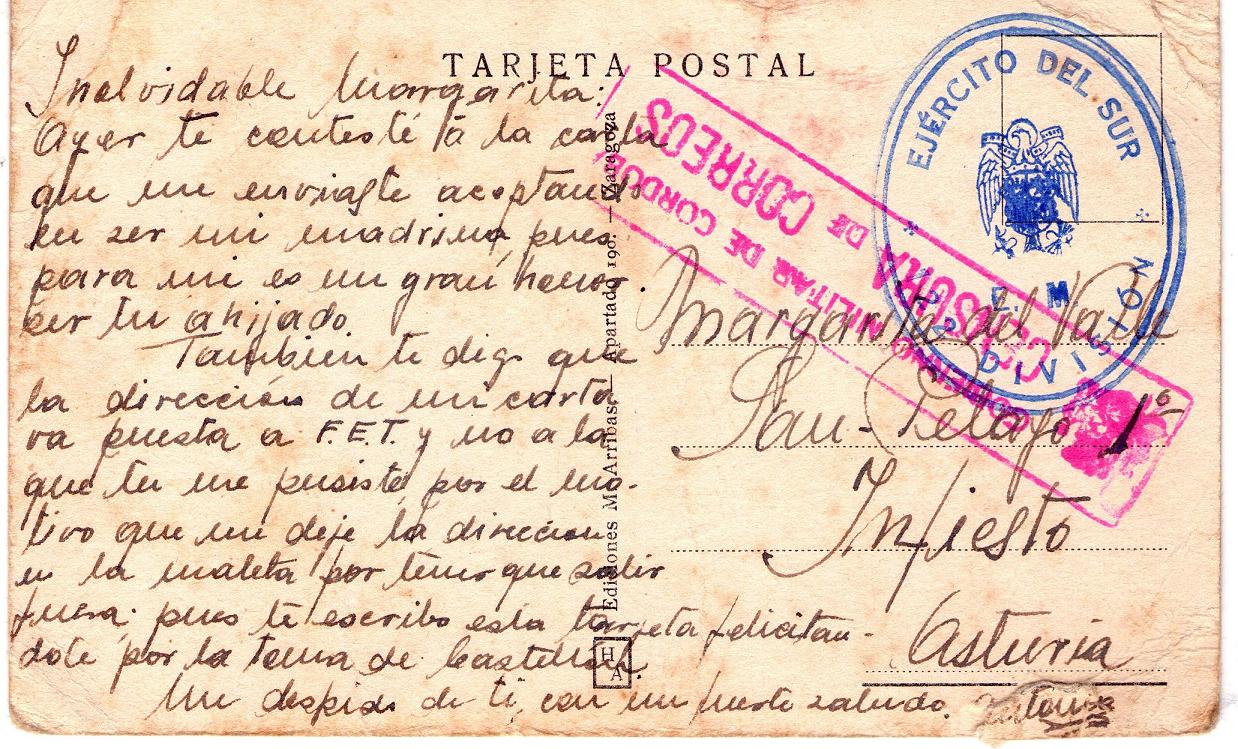 TARJETA POSTAL
Inolvidable Margarita:
Ayer te contesté a la carta
que me enviaste aceptando
en ser mi madrina, pues
para mi es un gran honor
ser tu ahijado.
Tambien te digo que
la dirección de mi carta
va puesta a F.E.T. y no a la
que tu me pusiste, por el mo-
tivo que me deje la direccion
en la maleta por tener que salir
fuera. pues te escribo esta tarjeta felicitan-
dote por la toma de
Me despido de ti, con un fuerte saludo.
Antonio
Ediciones M. Arribas — Apartado 190. — Zaragoza
HA
EJÉRCITO DEL SUR
E. M.
22 DIVISIÓN
GOBIERNO MILITAR DE CORDOBA
CENSURA DE CORREOS
Margarita del Valle
San-Pelayo 1º
Infiesto
Asturia